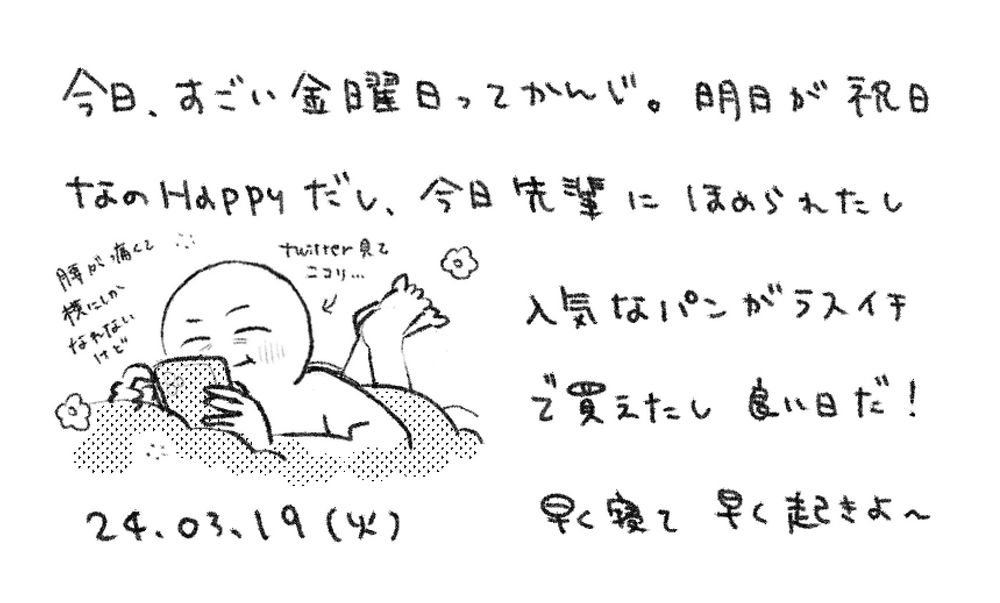 今日、すごい金曜日ってかんじ。明日が祝日
なのHappyだし、今日先輩にほめられたし
人気なパンがラスイチ
で買えたし良い日だ!
早く寝て早く起きよ〜
腰が痛くて
横にしか
なれない
けど
twitter見て
ニコリ…
24.03.19(火)